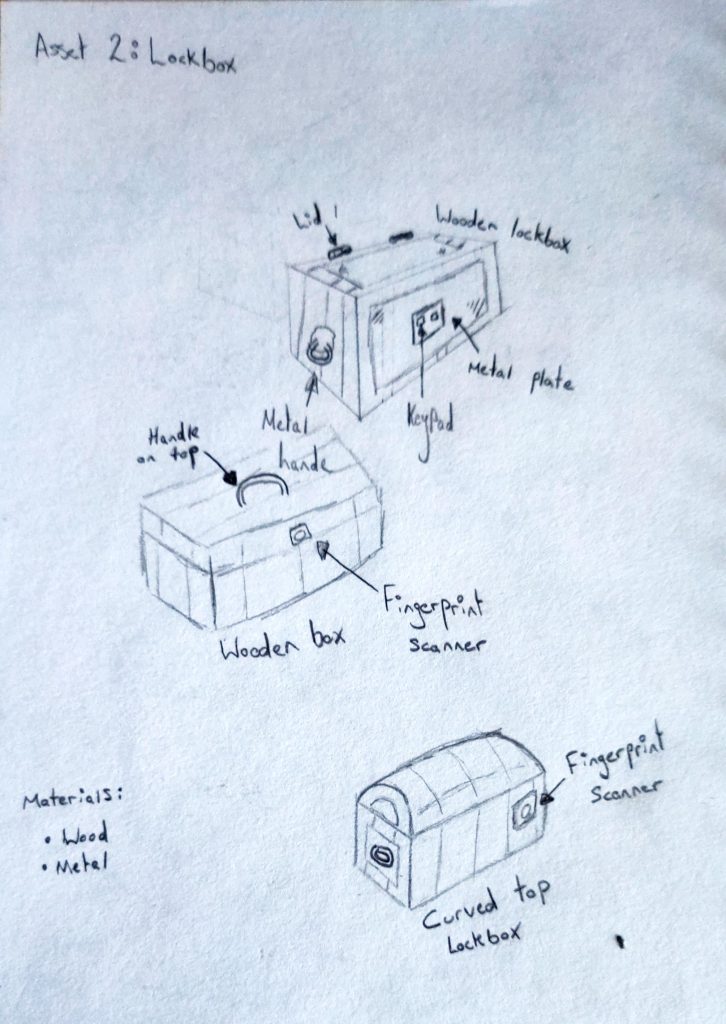 Asset 2: Lockbox
Lid
Wooden lockbox
Metal plate
Keypad
Metal
hande
Handle
on top
Fingerprint
scanner
Wooden box
Fingerprint
Scanner
Materials:
• Wood
• Metal
Curved top
Lockbox